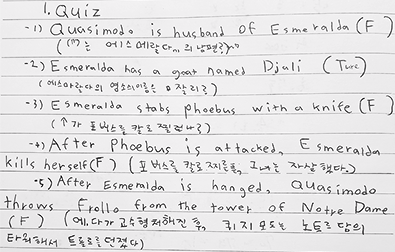 1. Quiz
-1) Quasimodo is husband of Esmeralda (F)
는 에스메랄다의 남편?
-2) Esmeralda has a goat named Djali (True)
(에스마랄다의 염소의이름은 잘리?)
-3) Esmeralda stabs phoebus with a knife (F)
(↑가 포버스를 칼로 찔렀나?)
-4) After Phoebus is attacked, Esmeralda
kills herself (F) (포버스를 칼로 찌른 후, 자살했다.)
-5) After Esmeralda is hanged, Quasimodo
throws Frollo from the tower of Notre Dame
(F) (에,다가 교수형저해진 후, 퀴지모도는 노트르담의
타워해서 프롤로를 던졌다)